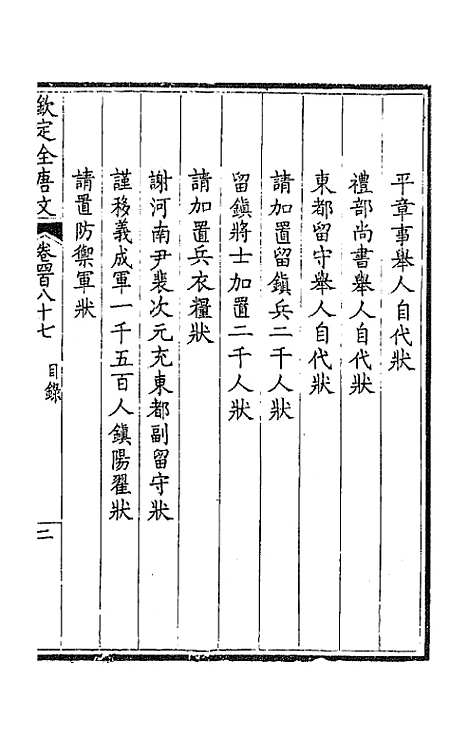 平章事舉人自代狀
禮部尚書舉人自代狀
東都留守舉人自代狀
請加置留鎮兵二千人狀
留鎮將士加置二千人狀
請加置兵衣糧狀
謝河南尹裴次元充東都副留守狀
謹移義成軍一千五百人鎮陽翟狀
請置防禦軍狀
欽定全唐文 卷四百八十七 目錄 二